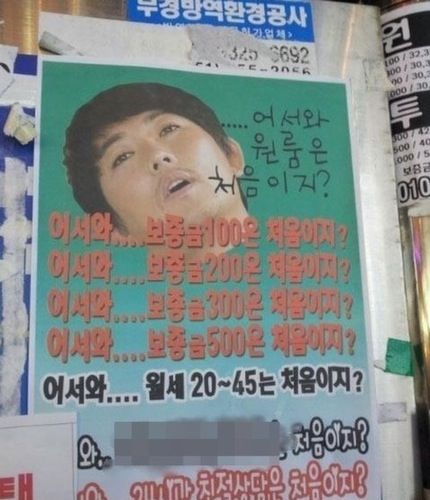 무경방역환경공사
325-6692
55-2056
.....어서와
원룸은
처음이지?
어서와....보증금100은 처음이지?
어서와....보증금200은 처음이지?
어서와....보증금300은 처음이지?
어서와....보증금500은 처음이지?
어서와.... 월세 20~45는 처음이지?
와.. 처음이지?
24시간 친절상담은 처음이지?
원
투
010
택